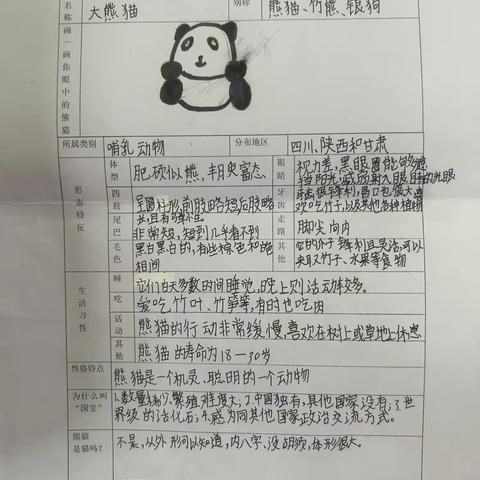 名称
大熊猫
别称
熊猫、竹熊、银狗
画一画你眼中的熊猫
所属类别
哺乳动物
分布地区
四川、陕西和甘肃
形态特征
体型
肥硕似熊,丰腴富态
眼睛
视力差,黑眼圈能够遮
挡阳光,减弱射入眼睛的光
四肢
呈圆柱形,前肢略短后肢略
长且有弹性
牙齿
牙齿很锋利,胃口也很大
喜欢吃竹子,以及其他各种植物
尾巴
非常短,短到几乎看不到
走路
脚尖向内
毛色
黑白黑白的,有些棕色和白
相间
其他
它的爪子锋利且灵活,可以
夹取竹子、水果等食物
生活习性
睡
它们白天多数时间睡觉,晚上则活动较多。
吃
爱吃竹叶、竹笋等,有的也吃肉
活动
熊猫的行动非常缓慢,喜欢在树上或草地上休息
其他
熊猫的寿命为18—30岁
性格特点
熊猫是一个机灵、聪明的一个动物
为什么叫“国宝”
1.数量稀少,繁殖难度大;2.中国独有,其他国家没有;3.世
界级的活化石;4.为同其他国家政治交流方式。
熊猫是猫吗?
不是,从外形可以知道,内八字、没胡须,体形很大。